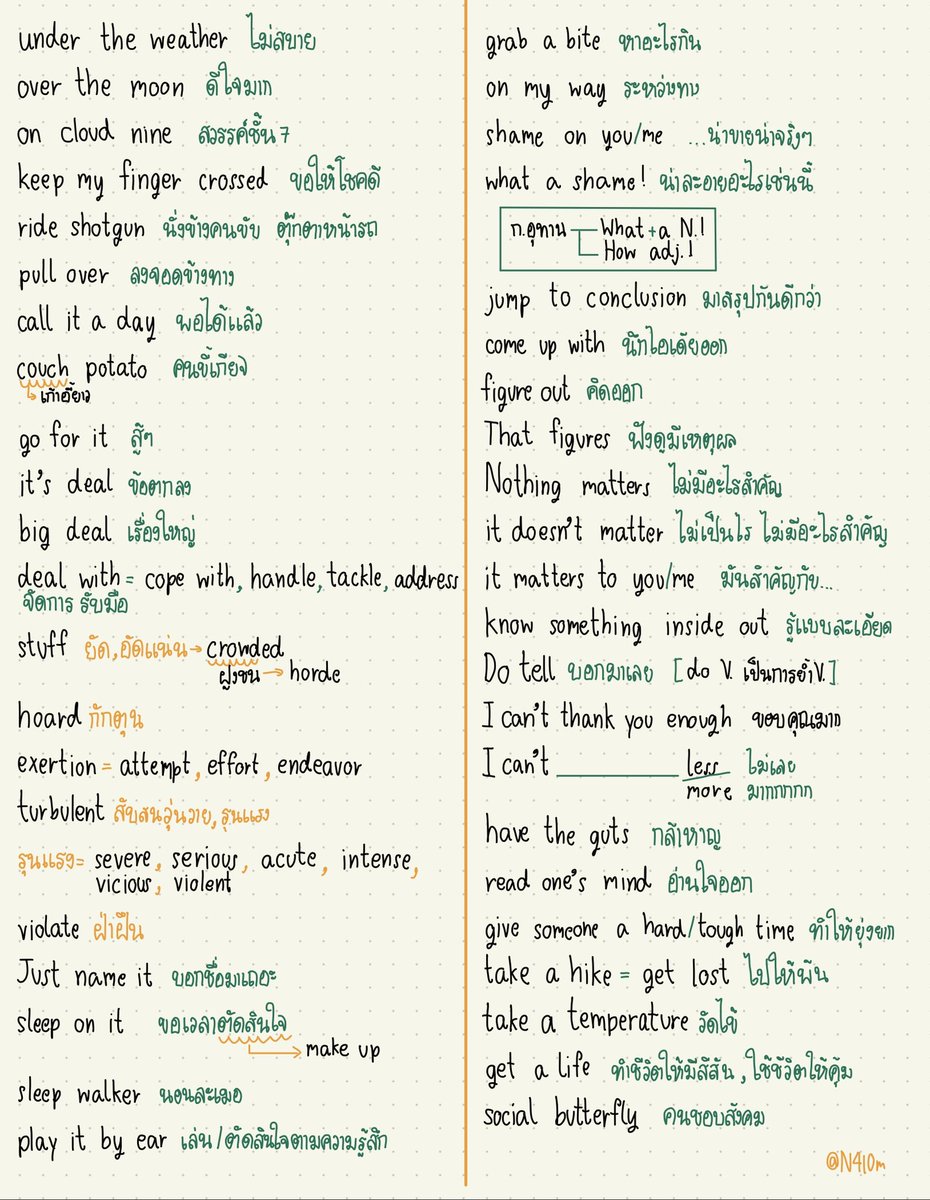 under the weather ไม่สบาย
over the moon ดีใจมาก
on cloud nine สวรรค์ชั้น 7
keep my finger crossed ขอให้โชคดี
ride shotgun นั่งข้างคนขับ ตุ๊กตาหน้ารถ
pull over ลงจอดข้างทาง
call it a day พอได้แล้ว
couch potato คนขี้เกียจ
เก้าอี้ยาว
go for it สู้ๆ
it's deal ข้อตกลง
big deal เรื่องใหญ่
deal with = cope with, handle, tackle, address
จัดการ รับมือ
stuff ยัด, อัดแน่น → crowded
ฝูงชน → horde
hoard กักตุน
exertion = attempt, effort, endeavor
turbulent สับสนวุ่นวาย, รุนแรง
รุนแรง = severe, serious, acute, intense,
vicious, violent
violate ฝ่าฝืน
Just name it บอกชื่อมาเถอะ
sleep on it ขอเวลาตัดสินใจ
→ make up
sleep walker นอนละเมอ
play it by ear เล่น/ตัดสินใจตามความรู้สึก
grab a bite หาอะไรกิน
on my way ระหว่างทาง
shame on you/me ...น่าขายน่าจริงๆ
what a shame! น่าละอายอะไรเช่นนี้
ก.อุทาน What + a N.!
How adj.!
jump to conclusion มาสรุปกันดีกว่า
come up with นึกไอเดียออก
figure out คิดออก
That figures ฟังดูมีเหตุผล
Nothing matters ไม่มีอะไรสำคัญ
it doesn't matter ไม่เป็นไร ไม่มีอะไรสำคัญ
it matters to you/me มันสำคัญกับ...
know something inside out รู้แบบละเอียด
Do tell บอกมาเลย [do V. เป็นการย้ำV.]
I can't thank you enough ขอบคุณมาก
I can't ________ less ไม่เลย
more มากกกกก
have the guts กล้าหาญ
read one's mind อ่านใจออก
give someone a hard/tough time ทำให้ยุ่งยาก
take a hike = get lost ไปให้พ้น
take a temperature วัดไข้
get a life ทำชีวิตให้มีสีสัน, ใช้ชีวิตให้คุ้ม
social butterfly คนชอบสังคม
@N4l0m